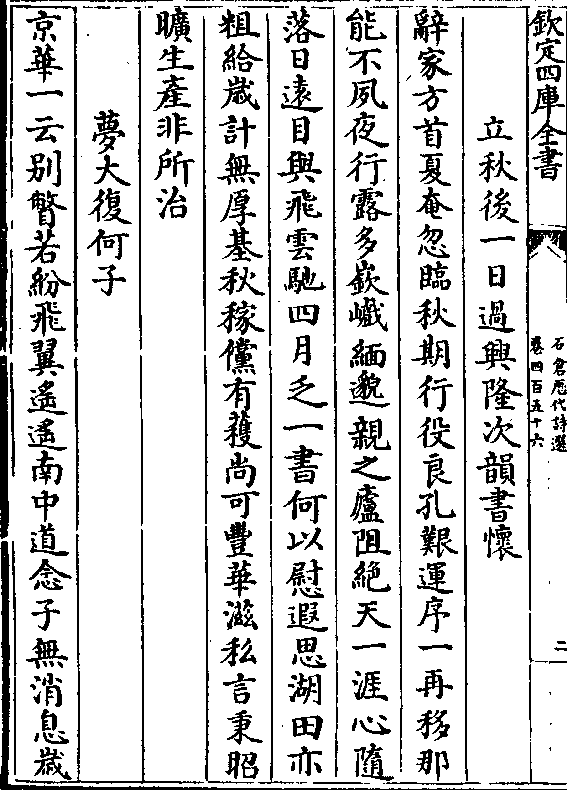 欽定四庫全書
石倉歷代詩選
卷四百五十六
二
立秋後一日過興隆次韻書懷
辭家方首夏奄忽臨秋期行役良孔艱運序一再移那
能不夙夜行露多嶔巇緬邈親之廬阻絶天一涯心隨
落日遠目與飛雲馳四月乏一書何以慰遐思湖田亦
粗給嵗計無厚基秋稼儻有穫尚可豐華滋私言秉昭
曠生產非所治
夢大復何子
京華一云别瞥若紛飛翼遙遙南中道念子無消息嵗